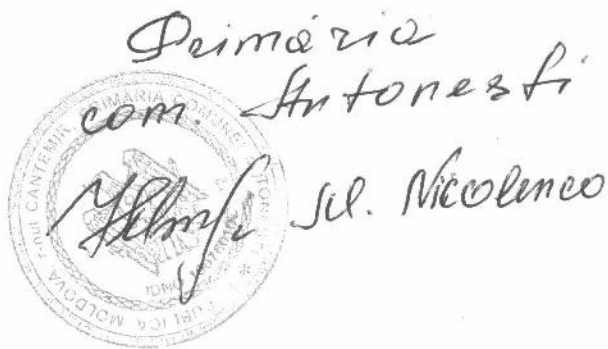 Primăria
com. Antonesti
Nicolenco
REPUBLICA MOLDOVA r-nul CANTEMIR PRIMĂRIA COMUNEI